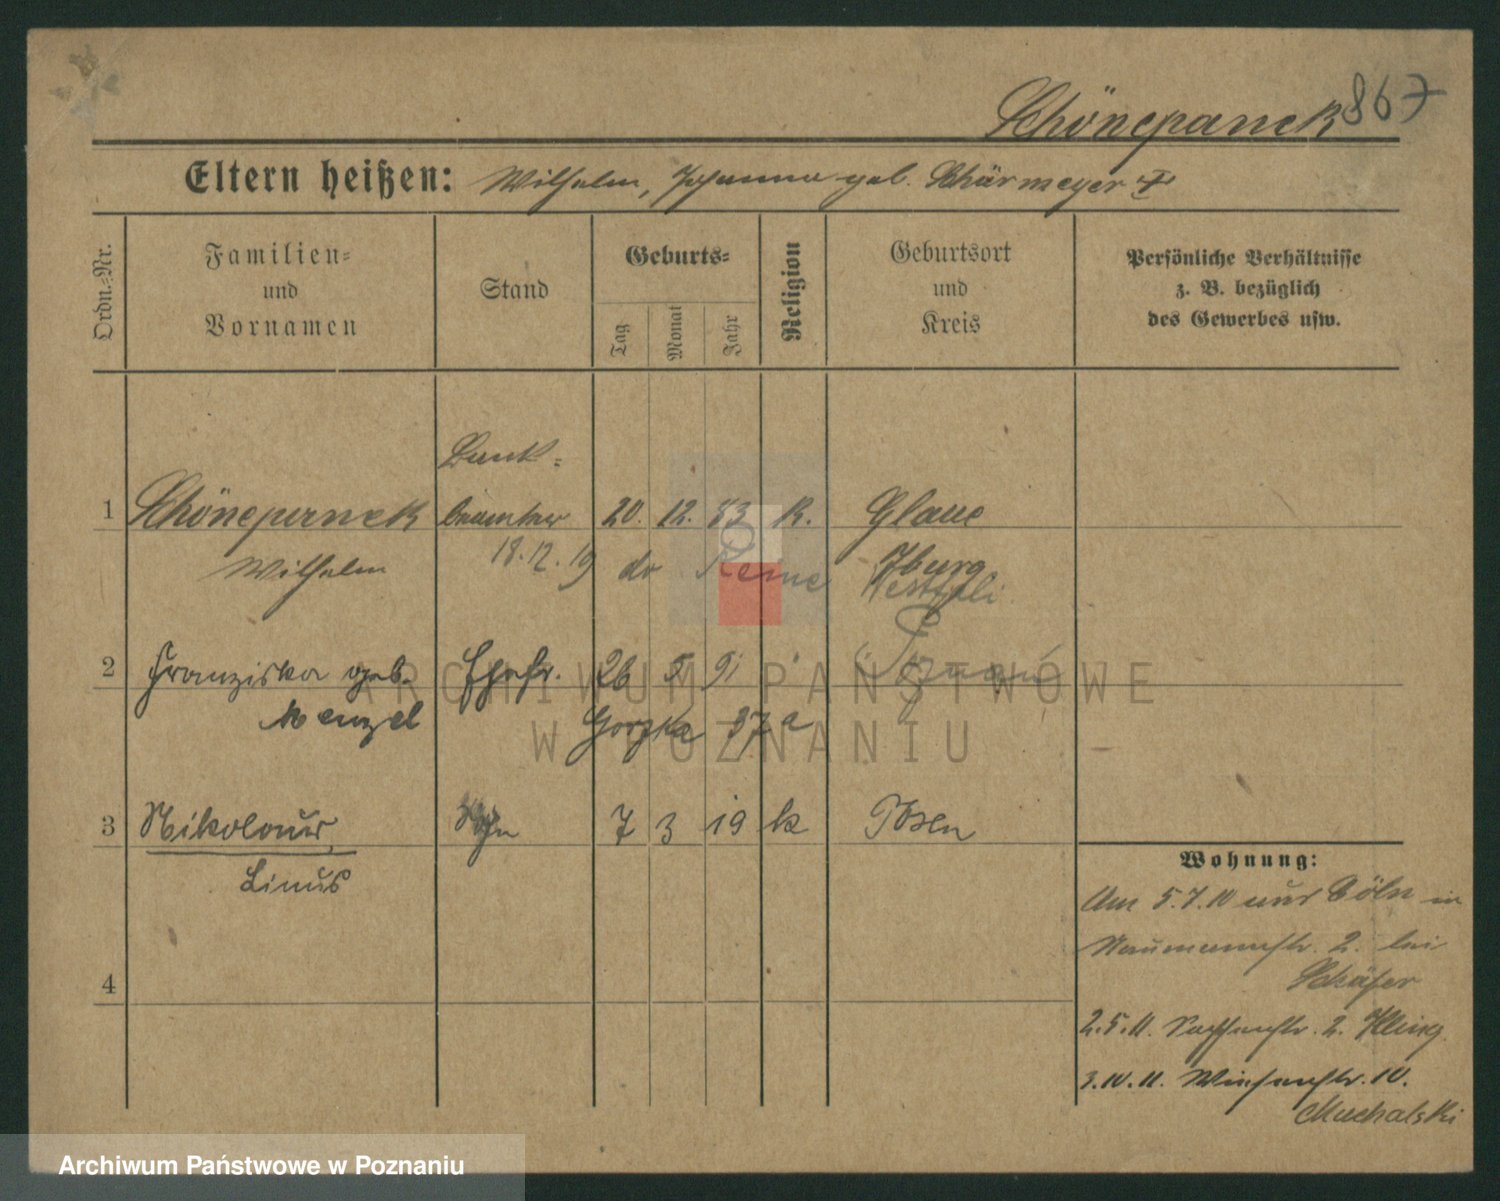 Schönepauck 867
Eltern heißen: Wilhelm, Johanna geb. Schürmeyer †
Ordn.-Nr.
Familien-
und
Vornamen
Stand
Geburts-
Tag
Monat
Jahr
Religion
Geburtsort
und
Kreis
Persönliche Verhältnisse
z. B. bezüglich
des Gewerbes usw.
Bank-
1 Schönepauck beamter 20. 12. 83 K. Glane
Wilhelm 18.12.19 Iburg
Westfali
2 Franziska geb. Ehefr. 26 5 91 Poznań
Menzel 37a
3 Nikolaus Sohn 7 3 19 k Posen
Linus
Wohnung:
Am 5.7.10 aus Cöln in
Naumannstr. 2. bei
Schäfer
4
2.5.11. 2. Kling
3.10.11. 10.
Muchalski
ARCHIWUM PAŃSTWOWE
W POZNANIU
Archiwum Państwowe w Poznaniu